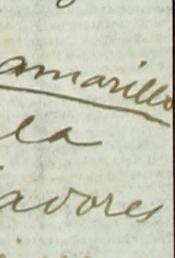 amarillo
la
adores